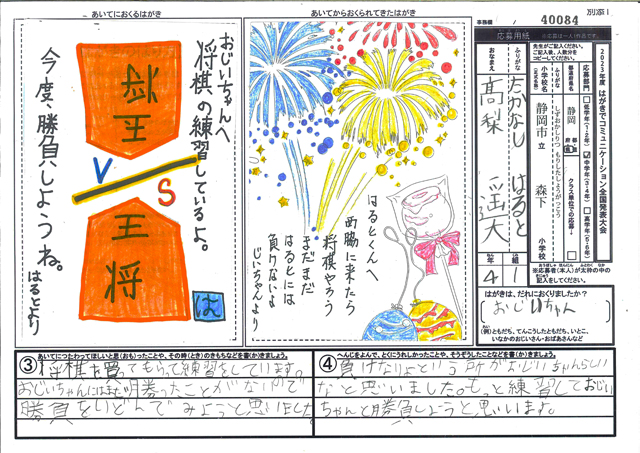 別添1
事務欄
40084
あいてにおくるはがき
おじいちゃんへ
将棋の練習しているよ。
王将
VS
王将
今度、勝負しようね。
はるとより
は
あいてからおくられてきたはがき
はるとくんへ
西脇に来たら
将棋やろう
まだまだ
はるとには
負けないよ
じいちゃんより
2023年度 はがきでコミュニケーション全国発表大会
応募用紙
先生がご記入ください。
ご記入後、人数分を
コピーしてください。
応募部門
低学年(1・2年)
中学年(3・4年)
高学年(5・6年)
都道府県名
静岡
都道府県
クラス単位での応募
ふりがな
小学校名
(正式名称)
しずおかしりつ もりしたしょうがっこう
静岡市立 森下 小学校
ふりがな
たかなし はると
おなまえ
高梨 遥大
学年 4
組 1
※応募者(本人)が太枠の中の
記入をしてください。
はがきは、だれにおくりましたか?
(おじいちゃん)
(例)ともだち、てんこうしたともだち、いとこ、
いなかのおじいさん・おばあさんなど
③ あいてにつたわってほしいと思(おも)ったことや、その時(とき)のきもちなどを書(か)きましょう。
将棋を買ってもらって練習をしています。
おじいちゃんにはまだ勝ったことがないので
勝負をいどんでみようと思いました。
④ へんじをよんで、とくにうれしかったことや、そうぞうしたことなどを書(か)きましょう。
負けないよという所がおじいちゃんらしい
なと思いました。もっと練習しておじい
ちゃんと勝負しようと思います。